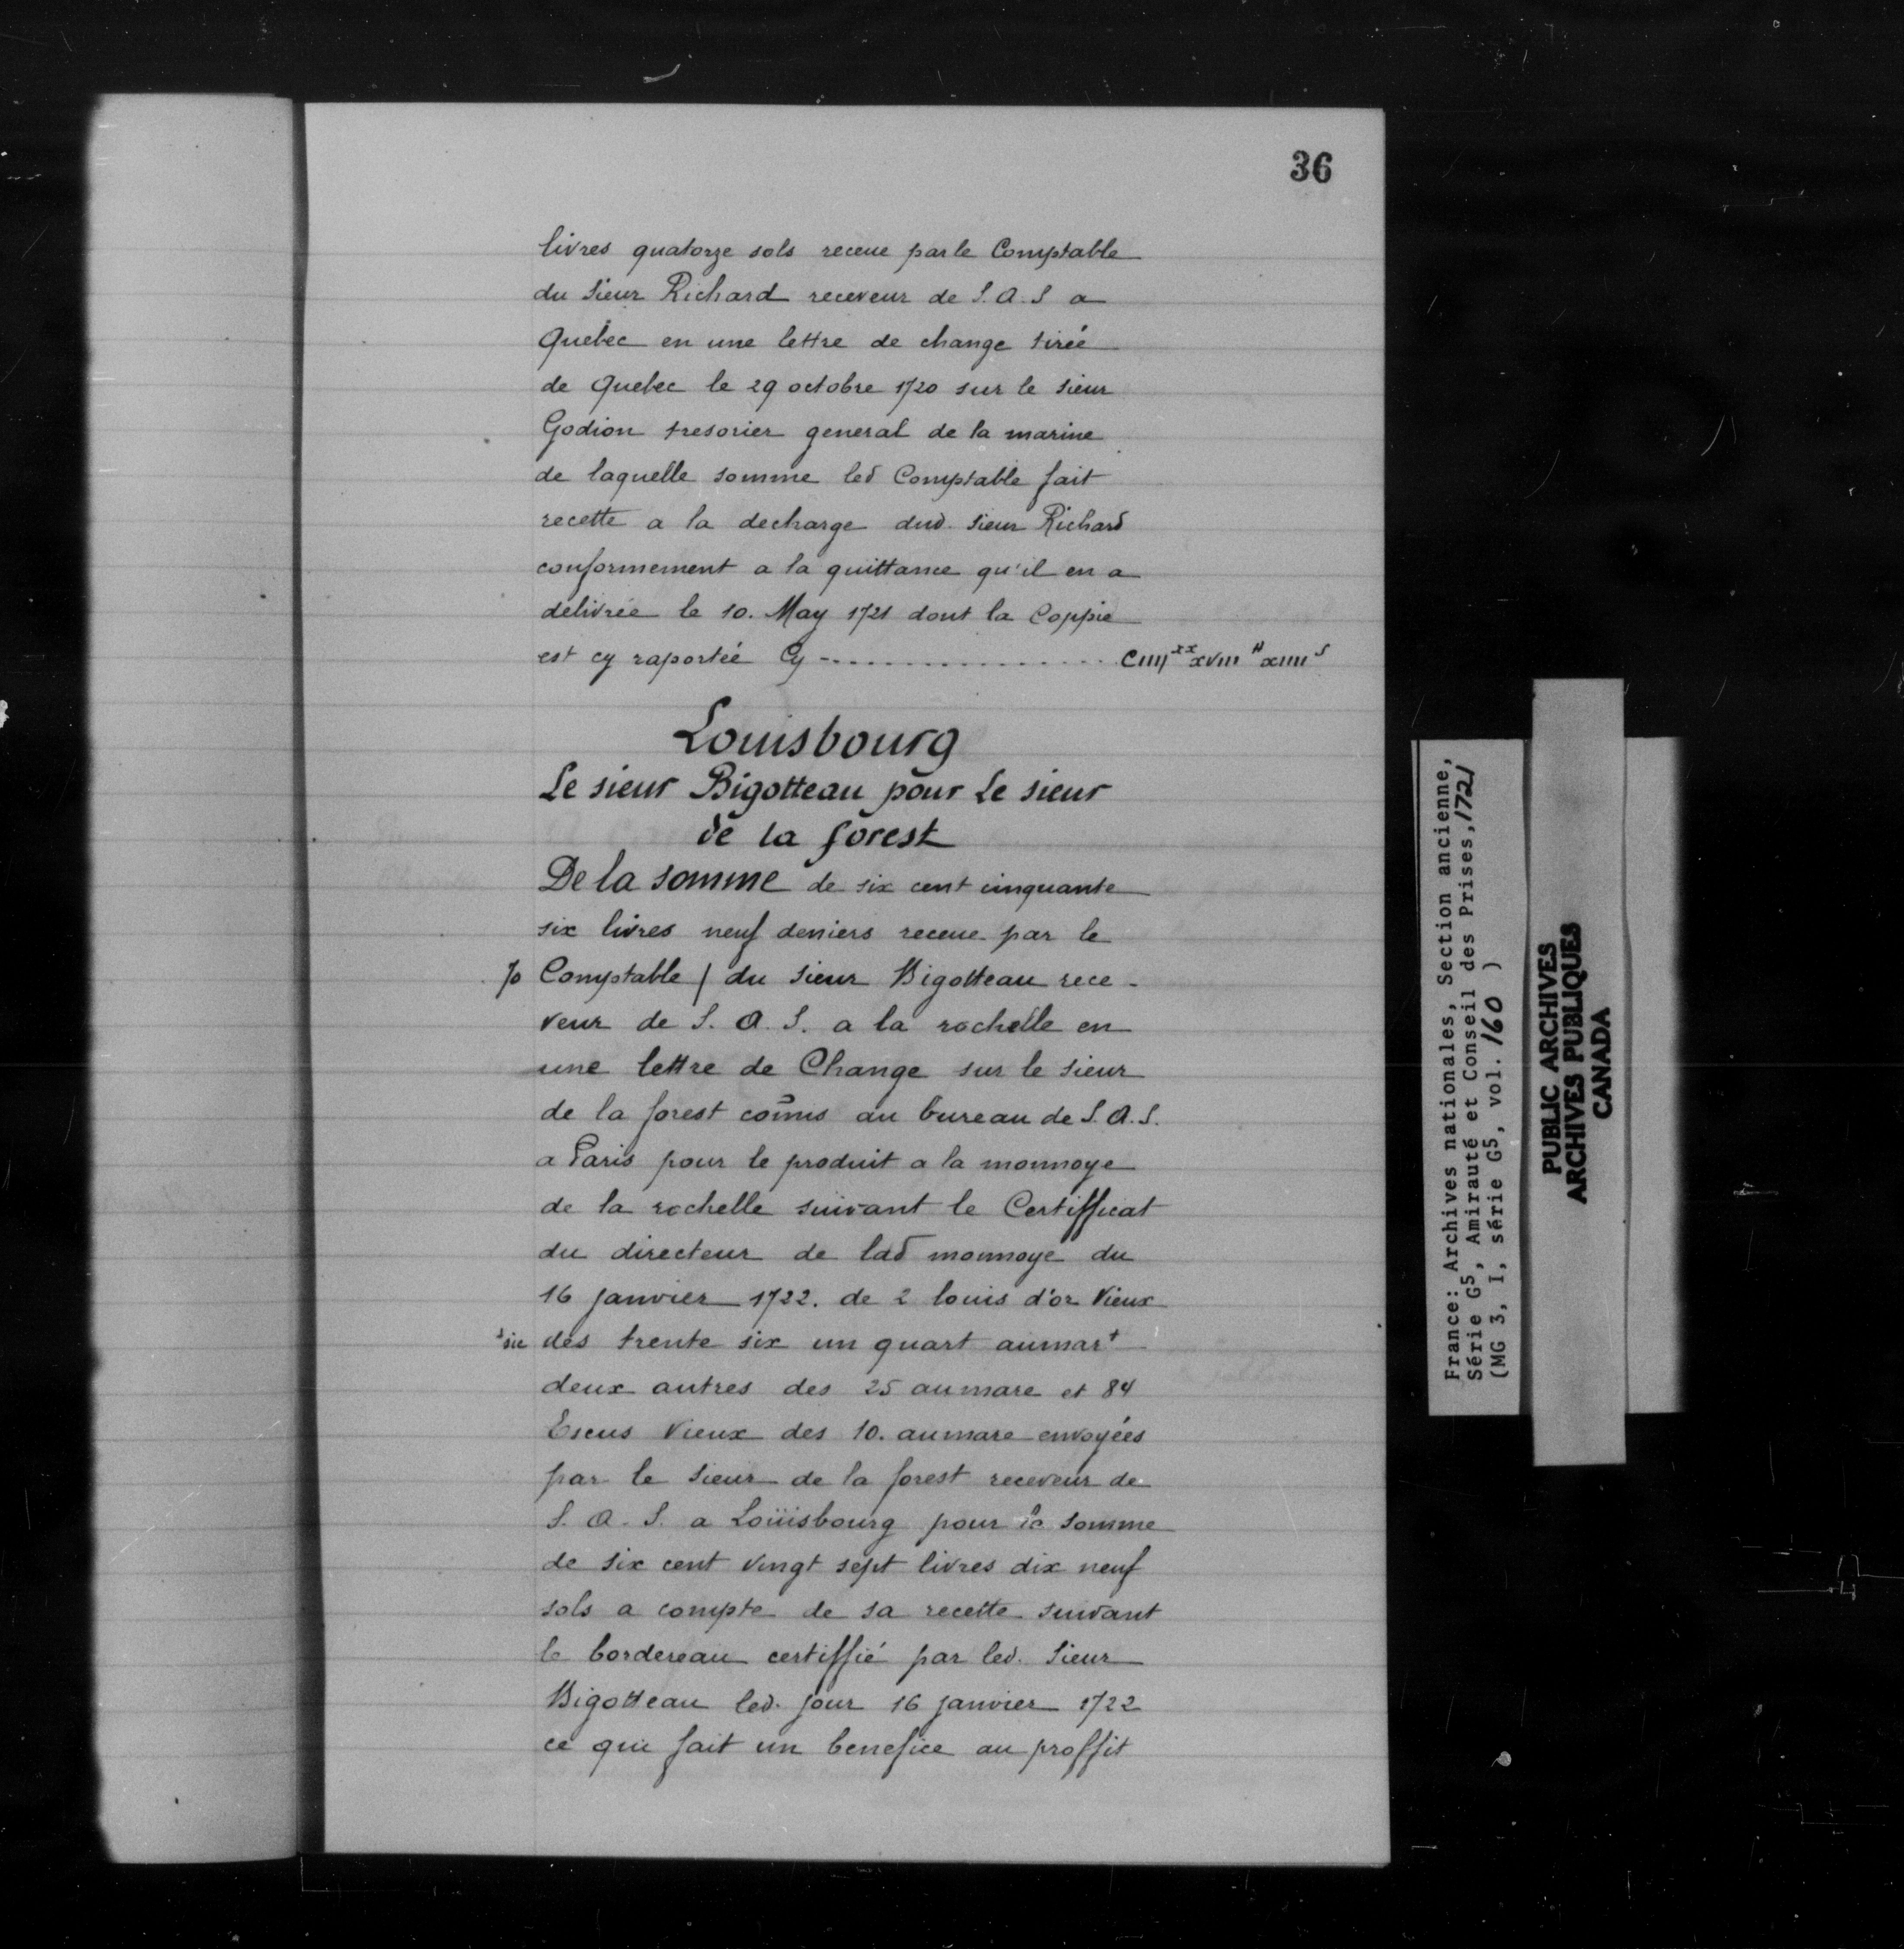 36
livres quatorze sols receue par le Comptable
du sieur Richard receveur de S.A.S a
Quebec en une lettre de change tirée
de Quebec le 29 octobre 1720 sur le sieur
Godion tresorier general de la marine
de laquelle somme led Comptable fait
recette a la decharge dud. sieur Richard
conformement a la quittance qu'il en a
delivrée le 10. May 1721 dont la Coppie
est cy raportée Cy - ................ CIIII^XX XVIII ^# XIIII ^S
Louisbourg
Le sieur Bigotteau pour Le sieur
de la forest
De la somme de six cent cinquante
six livres neuf deniers receue par le
Comptable / du sieur Bigotteau rece-
veur de S. A. S. a la rochelle en
une lettre de Change sur le sieur
de la forest com̄is au bureau de S.A.S.
a Paris pour le produit a la monnoye
de la rochelle suivant le Certifficat
du directeur de lad monnoye du
16 janvier 1722. de 2 louis d'or Vieux
sic des trente six un quart aumart
deux autres des 25 aumarc et 84
Escus Vieux des 10. aumarc envoyées
par le sieur de la forest receveur de
S. A. S. a Loüisbourg pour la somme
de six cent vingt sept livres dix neuf
sols a compte de sa recette suivant
le bordereau certiffié par led. Sieur
Bigotteau led. jour 16 janvier 1722
ce qui fait un benefice au proffit
France: Archives nationales, Section ancienne,
Série G5, Amirauté et Conseil des Prises, 1721
(MG 3, I, série G5, vol. 160 )
PUBLIC ARCHIVES
ARCHIVES PUBLIQUES
CANADA